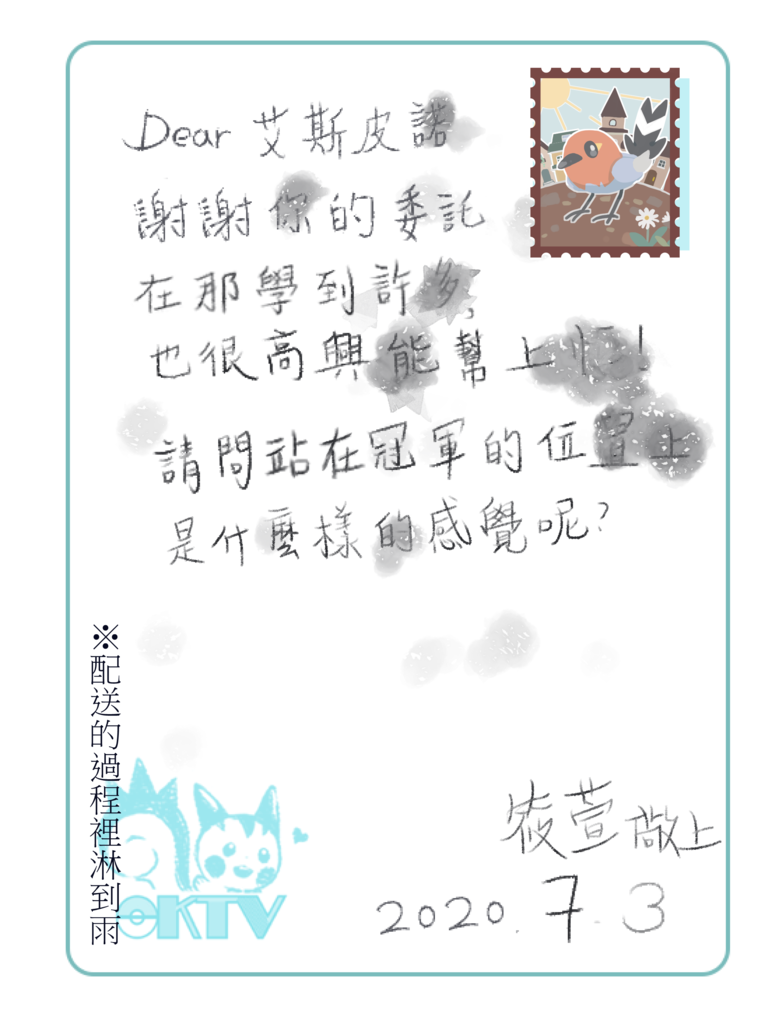 Dear 艾斯皮諾
謝謝你的委託
在那學到許多,
也很高興能幫上忙!
請問站在冠軍的位置上
是什麼樣的感覺呢?
筱萱 敬上
2020.7.3
※配送的過程裡淋到雨
OKTV